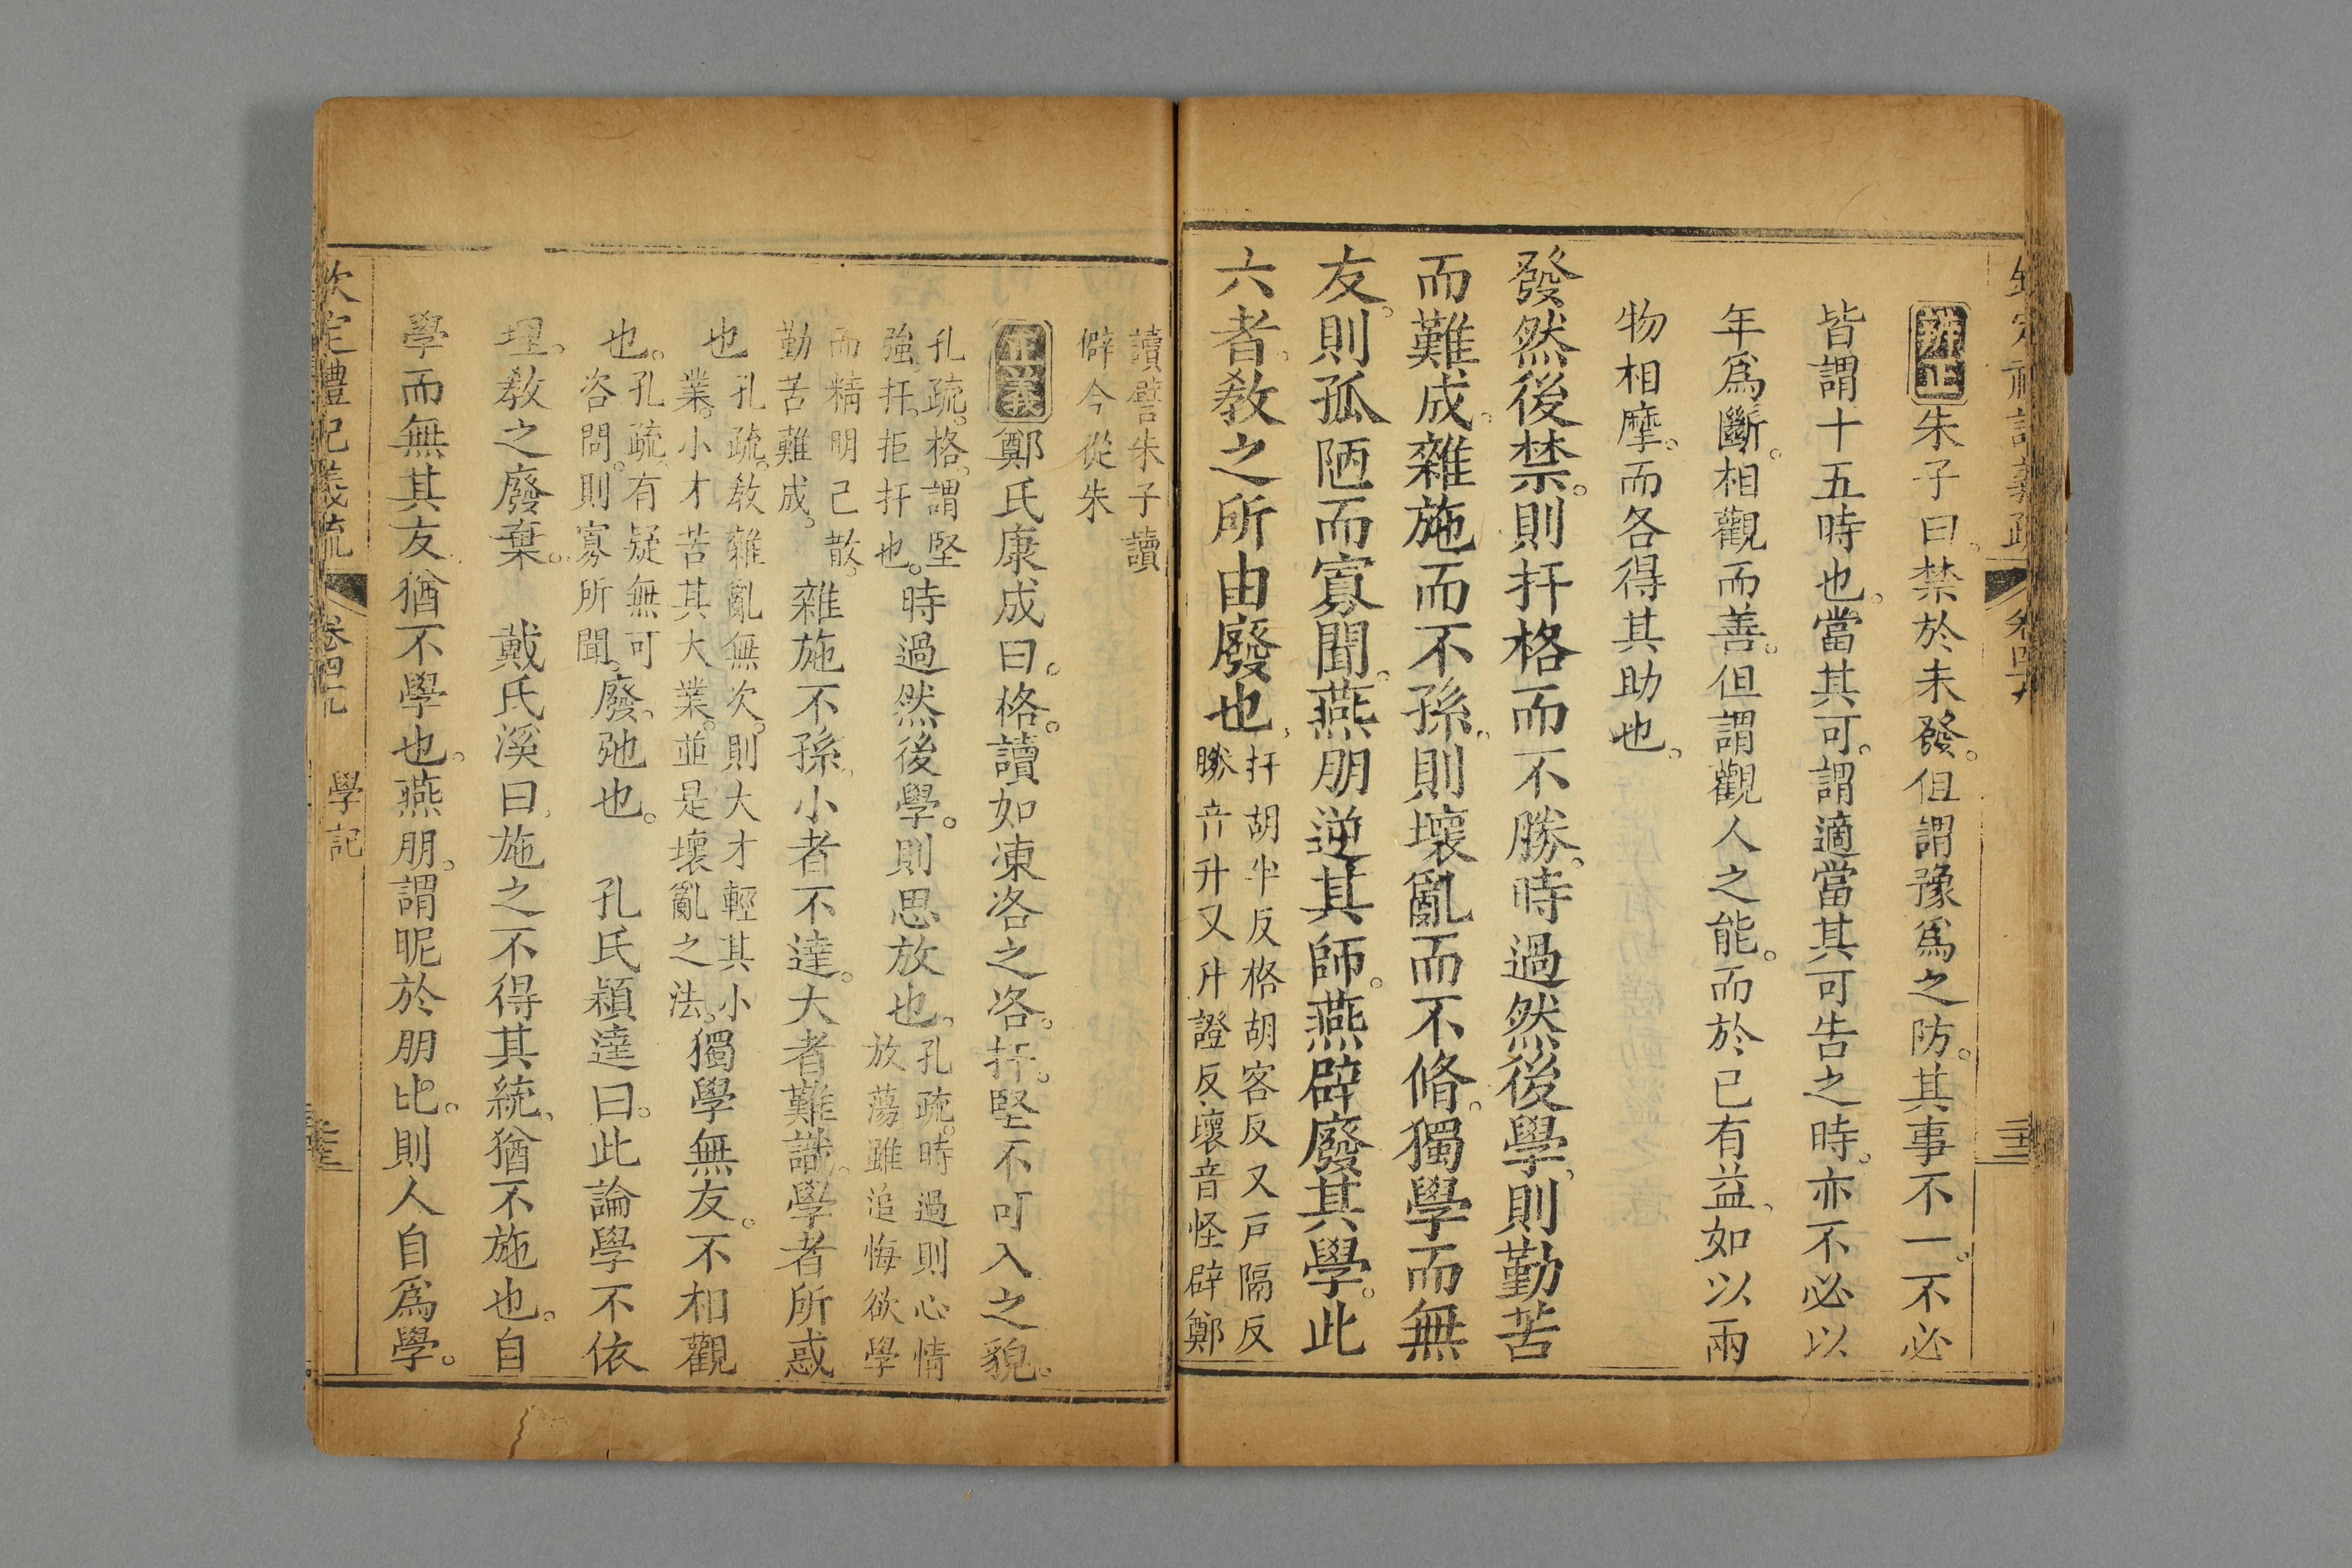 辨正朱子曰禁於未發。但謂豫爲之防。其事不一。不必
皆謂十五時也。當其可。謂適當其可告之時。亦不必以
年爲斷。相觀而善。但謂觀人之能。而於己有益、如以兩
物相摩。而各得其助也。
發然後禁。則扞格而不勝、時過然後學、則勤苦
而難成。雜施而不孫。則壞亂而不脩。獨學而無
友。則孤陋而寡聞。燕朋逆其師。燕辟廢其學。此
六者、敎之所由廢也、
扞胡半反格胡客反又戶隔反
勝音升又升證反壞音怪辟鄭
讀譬朱子讀
僻今從朱
正義鄭氏康成曰。格。讀如凍洛之洛。扞。堅不可入之貌。
孔疏。格。謂堅
強。扞。拒扞也。
時過然後學。則思放也。
孔疏。時過則心情
放蕩雖追悔欲學
而精明已散。
勤苦難成。
雜施不孫、小者不達。大者難識。學者所惑
也
孔疏。敎雜亂無次。則大才輕其小
業。小才苦其大業。並是壞亂之法。
獨學無友。不相觀
也。
孔疏、有疑無可
咨問。則寡所聞。
廢、弛也。 孔氏穎達曰。此論學不依
理。敎之廢棄。 戴氏溪曰、施之不得其統、猶不施也。自
學而無其友、猶不學也。燕朋。謂昵於朋比。則人自爲學。
欽定禮記義疏 卷四 學記